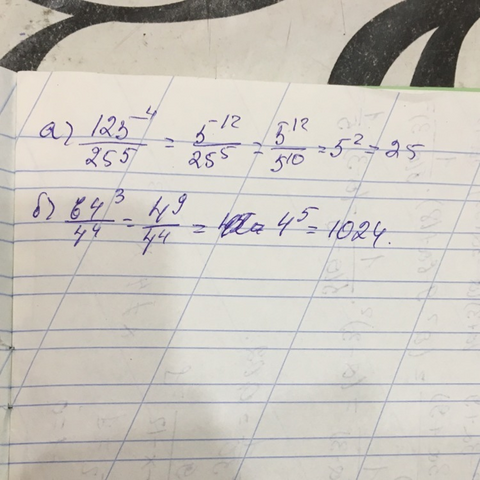 а) 125^-4 / 25^5 = 5^-12 / 25^5 = 5^12 / 5^10 = 5^2 = 25
б) 64^3 / 4^4 = 4^9 / 4^4 = 4^5 = 1024.